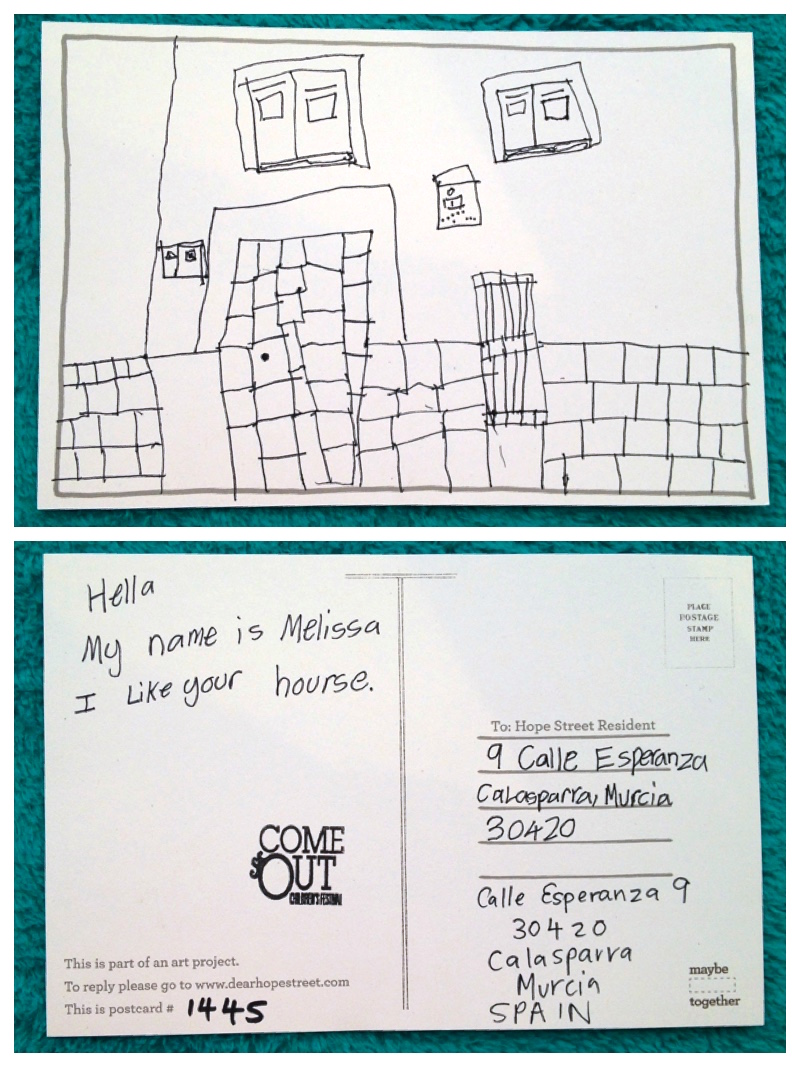 Hella
My name is Melissa
I Like your hourse.
COME
OUT
CHILDREN'S FESTIVAL
This is part of an art project.
To reply please go to www.dearhopestreet.com
This is postcard # 1445
PLACE
POSTAGE
STAMP
HERE
To: Hope Street Resident
9 Calle Esperanza
Calasparra, Murcia
30420
Calle Esperanza 9
30420
Calasparra
Murcia
SPAIN
maybe
together